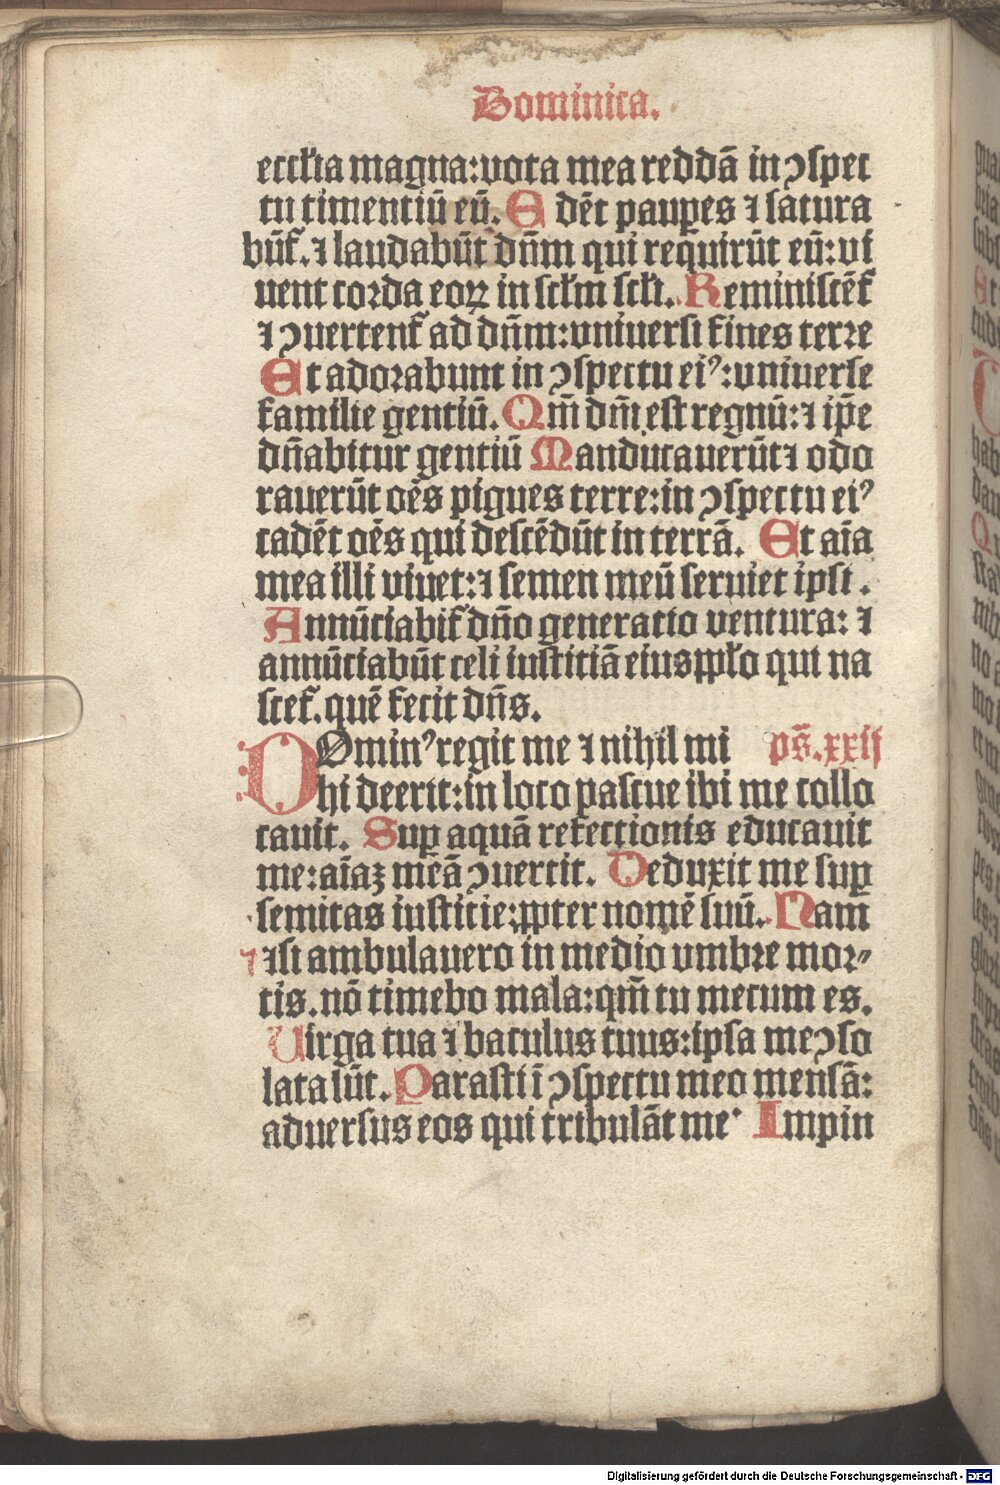 Dominica.
eccɫia magna:vota mea reddā in ꝯſpec
tu timentiū eū. Edēt pauꝑes ⁊ ſatura
būť. ⁊ laudabūt dn̄m qui requirūt eū:vi
uent corda eoꝝ in ſcɫm ſcɫi. Reminiſcēť
⁊ ꝯuertenť ad dn̄m:vniuerſi fines terre
Et adorabunt in ꝯſpectu eiꝰ:vniuerſe
familie gentiū. Qm̄ dn̄i eſt regnū:⁊ ip̄e
dn̄abitur gentiū Manducauerūt⁊ odo
rauerūt oēs pigues terre:in ꝯſpectu eiꝰ
cadēt oēs qui deſcēdūt in terrā. Et aīa
mea illi viuet:⁊ ſemen meū ſeruiet ipſi.
Annūciabiť dn̄o generatio ventura: ⁊
annūciabūt celi iuſticiā eius ppɫo qui na
ſceť. quē fecit dn̄s.
DOminꝰ regit me ⁊ nihil mi ps̄. xxij
hi deerit:in loco paſcue ibi me collo
cauit. Suꝑ aquā refectionis educauit
me:aīaꝫ mēā ꝯuertit. Deduxit me ſuꝑ
ſemitas iuſticie:ꝓpter nomē ſuū. Nam
⁊ſi ambulauero in medio vmbre mor⸗
tis. nō timebo mala:qm̄ tu mecum es.
Uirga tua ⁊ baculus tuus:ipſa me ꝯſo
lata ſūt. Paraſti ī ꝯſpectu meo menſā:
aduerſus eos qui tribulāt me. Impin
Digitalisierung gefördert durch die Deutsche Forschungsgemeinschaft - DFG